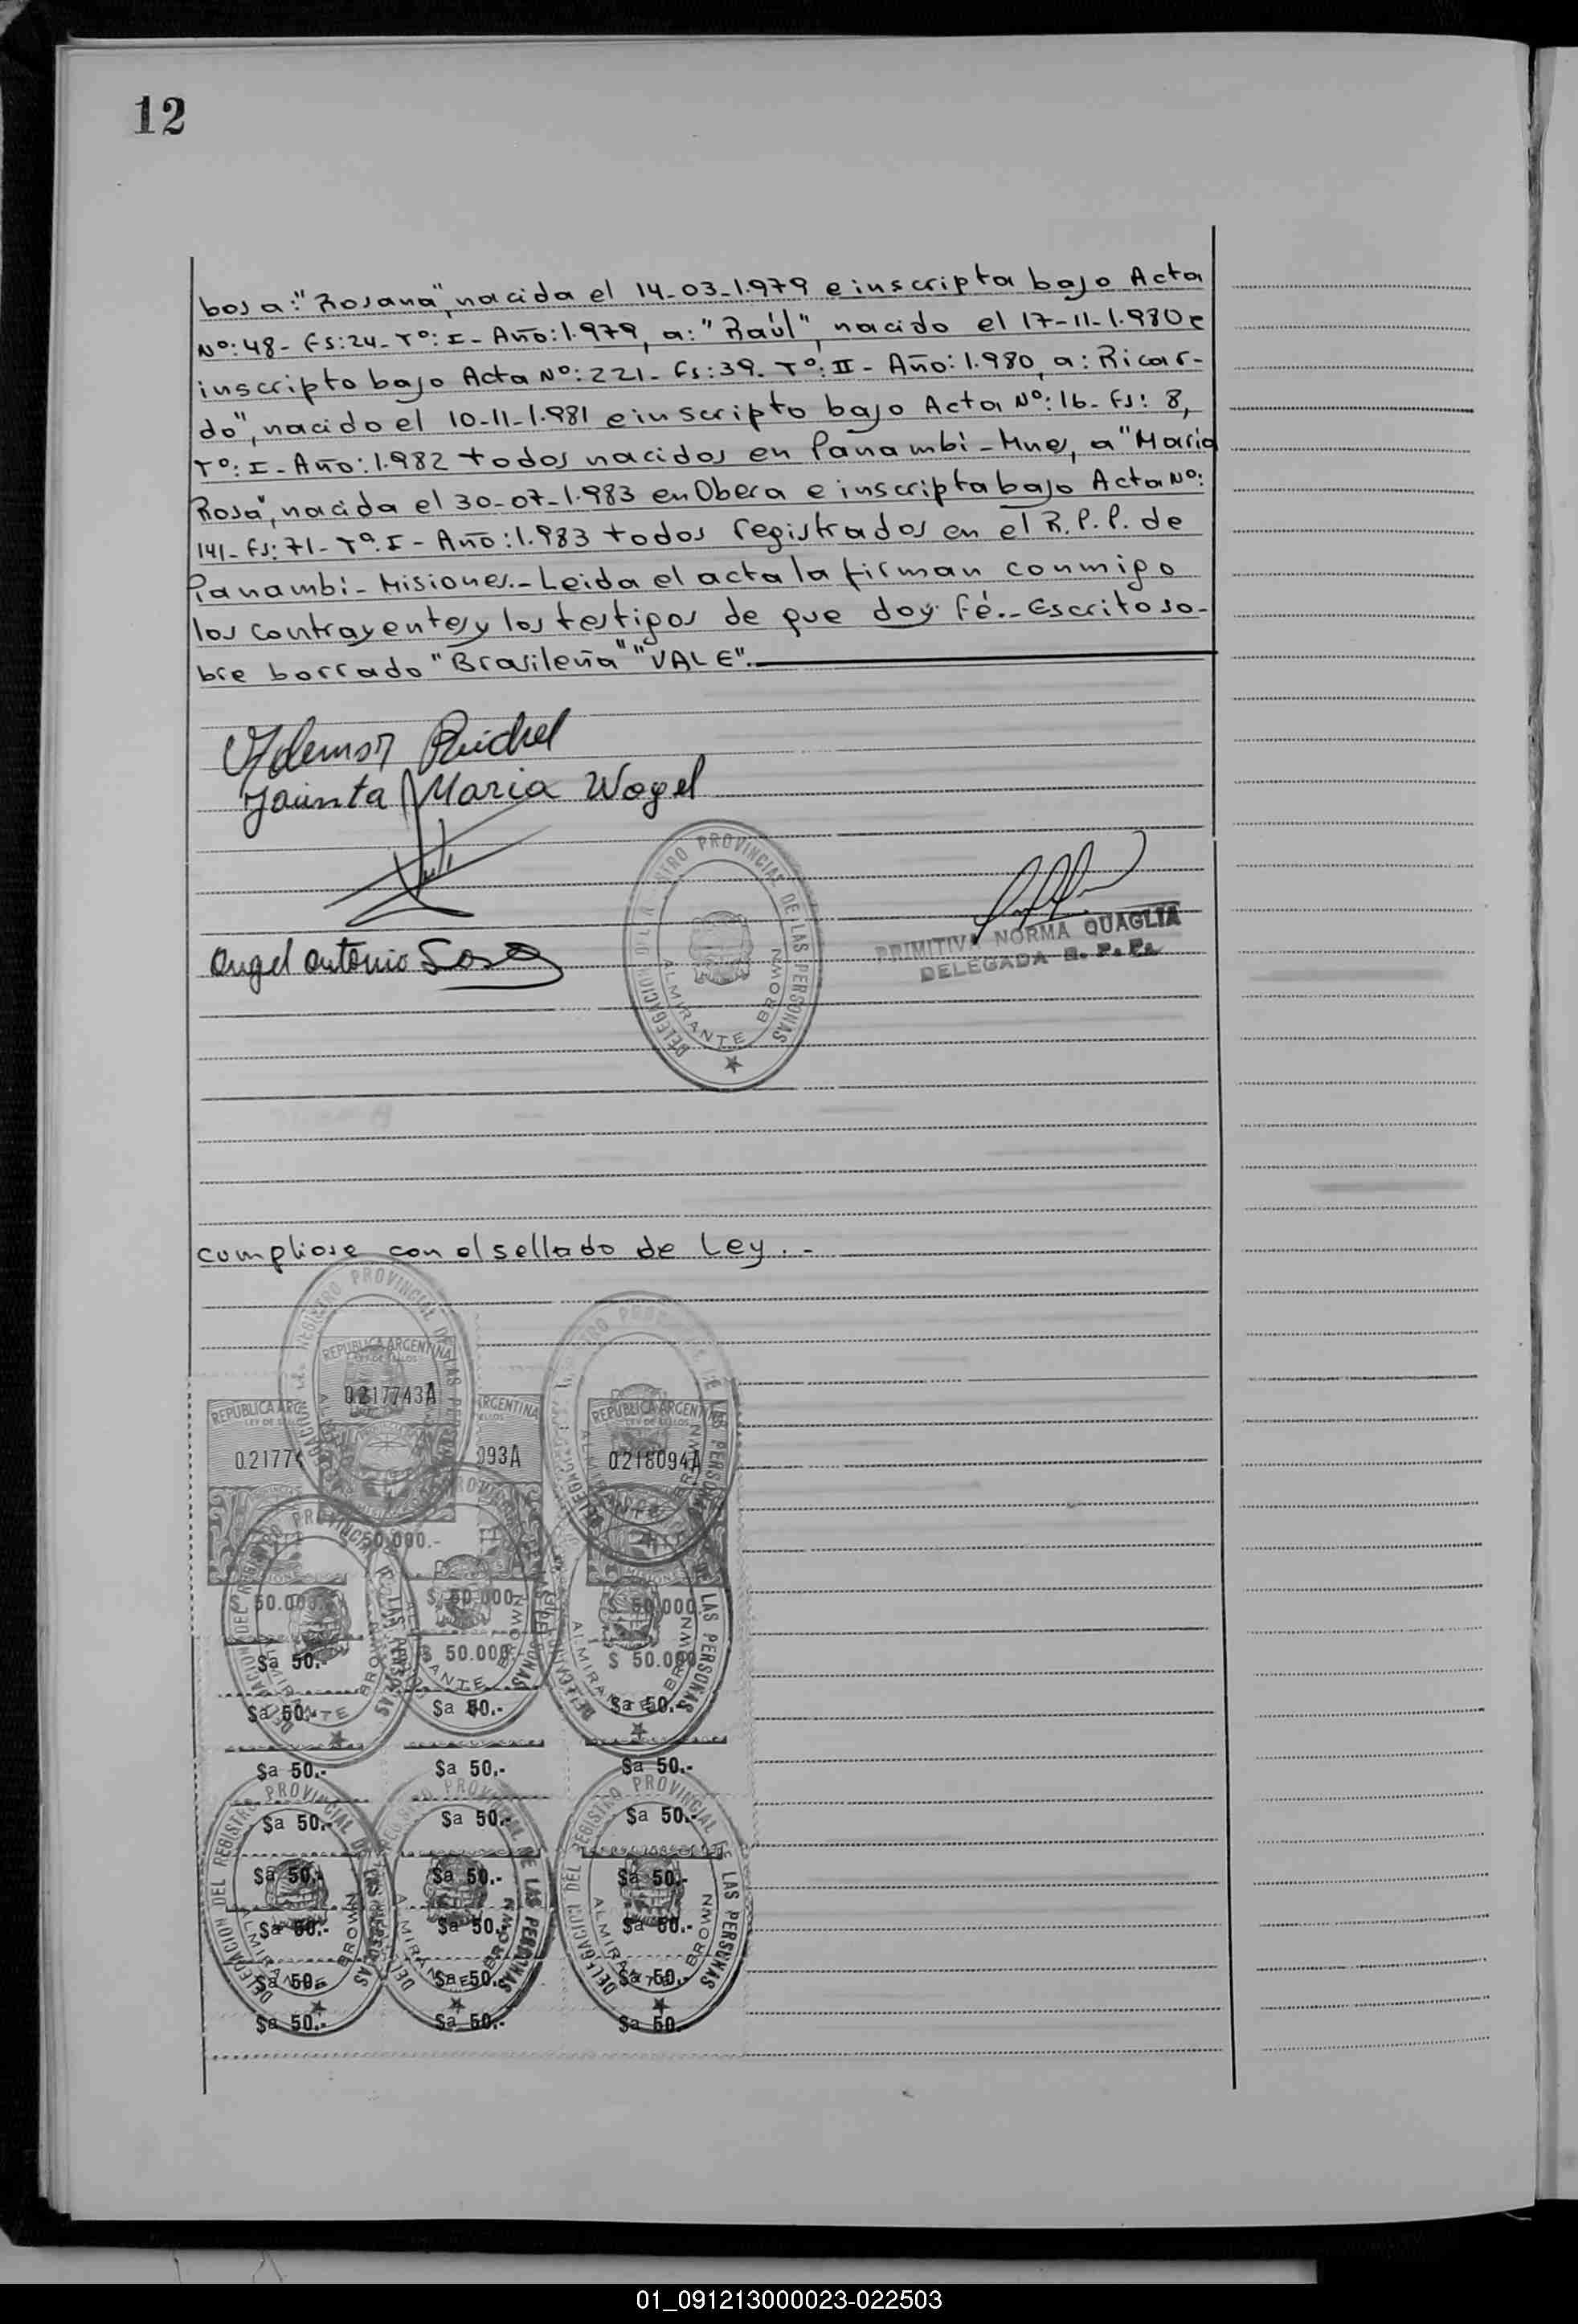 12
bos a: "Rosana", nacida el 14-03-1.979 e inscripta bajo Acta
Nº: 48- Fs: 24- Tº: I- Año: 1.979, a: "Raúl", nacido el 17-11-1.980 e
inscripto bajo Acta Nº: 221- Fs: 39- Tº: II- Año: 1.980, a: Ricar-
do", nacido el 10-11-1.981 e inscripto bajo Acta Nº: 16- Fs: 8,
Tº: I- Año: 1.982 todos nacidos en Panambi- Mnes, a "Maria
Rosa", nacida el 30-07-1.983 en Obera e inscripta bajo Acta Nº:
141- Fs: 71- Tº: I- Año: 1.983 todos registrados en el R.P.P. de
Panambi- Misiones.- Leida el acta la firman conmigo
los contrayentes y los testigos de que doy fé.- Escrito so-
bre borrado "Brasileña" "VALE".
Reichel
Maria Wogel
DELEGACION PROVINCIAL DE LAS PERSONAS
ALMIRANTE BROWN
PRIMITIVA NORMA QUAGLIA
DELEGADA R.P.P.
Angel Antonio Sosa
cumpliose con el sellado de Ley.-
REGISTRO PROVINCIAL DE LAS PERSONAS
REPUBLICA ARGENTINA
LEY DE SELLOS
0217743A
REPUBLICA ARG
RGENTINA
REPUBLICA ARGENTINA
LEY DE SELLOS
02177
093A
0218094A
50.000.-
$ 50.000
$ 50.000
$ 50.000
$a 50.-
$ 50.000
$ 50.000
$a 50.-
$a 50.-
$a 50.-
$a 50.-
$a 50.-
$a 50.-
PROVINCIAL
$a 50.-
$a 50.-
$a 50.-
DELEGACION DEL REGISTRO PROVINCIAL DE LAS PERSONAS
ALMIRANTE BROWN
$a 50.-
$a 50.-
$a 50.-
$a 50.-
$a 50.-
$a 50.-
$a 50.-
$a 50.-
$a 50.-
$a 50.-
$a 50.-
$a 50.-
01_091213000023-022503